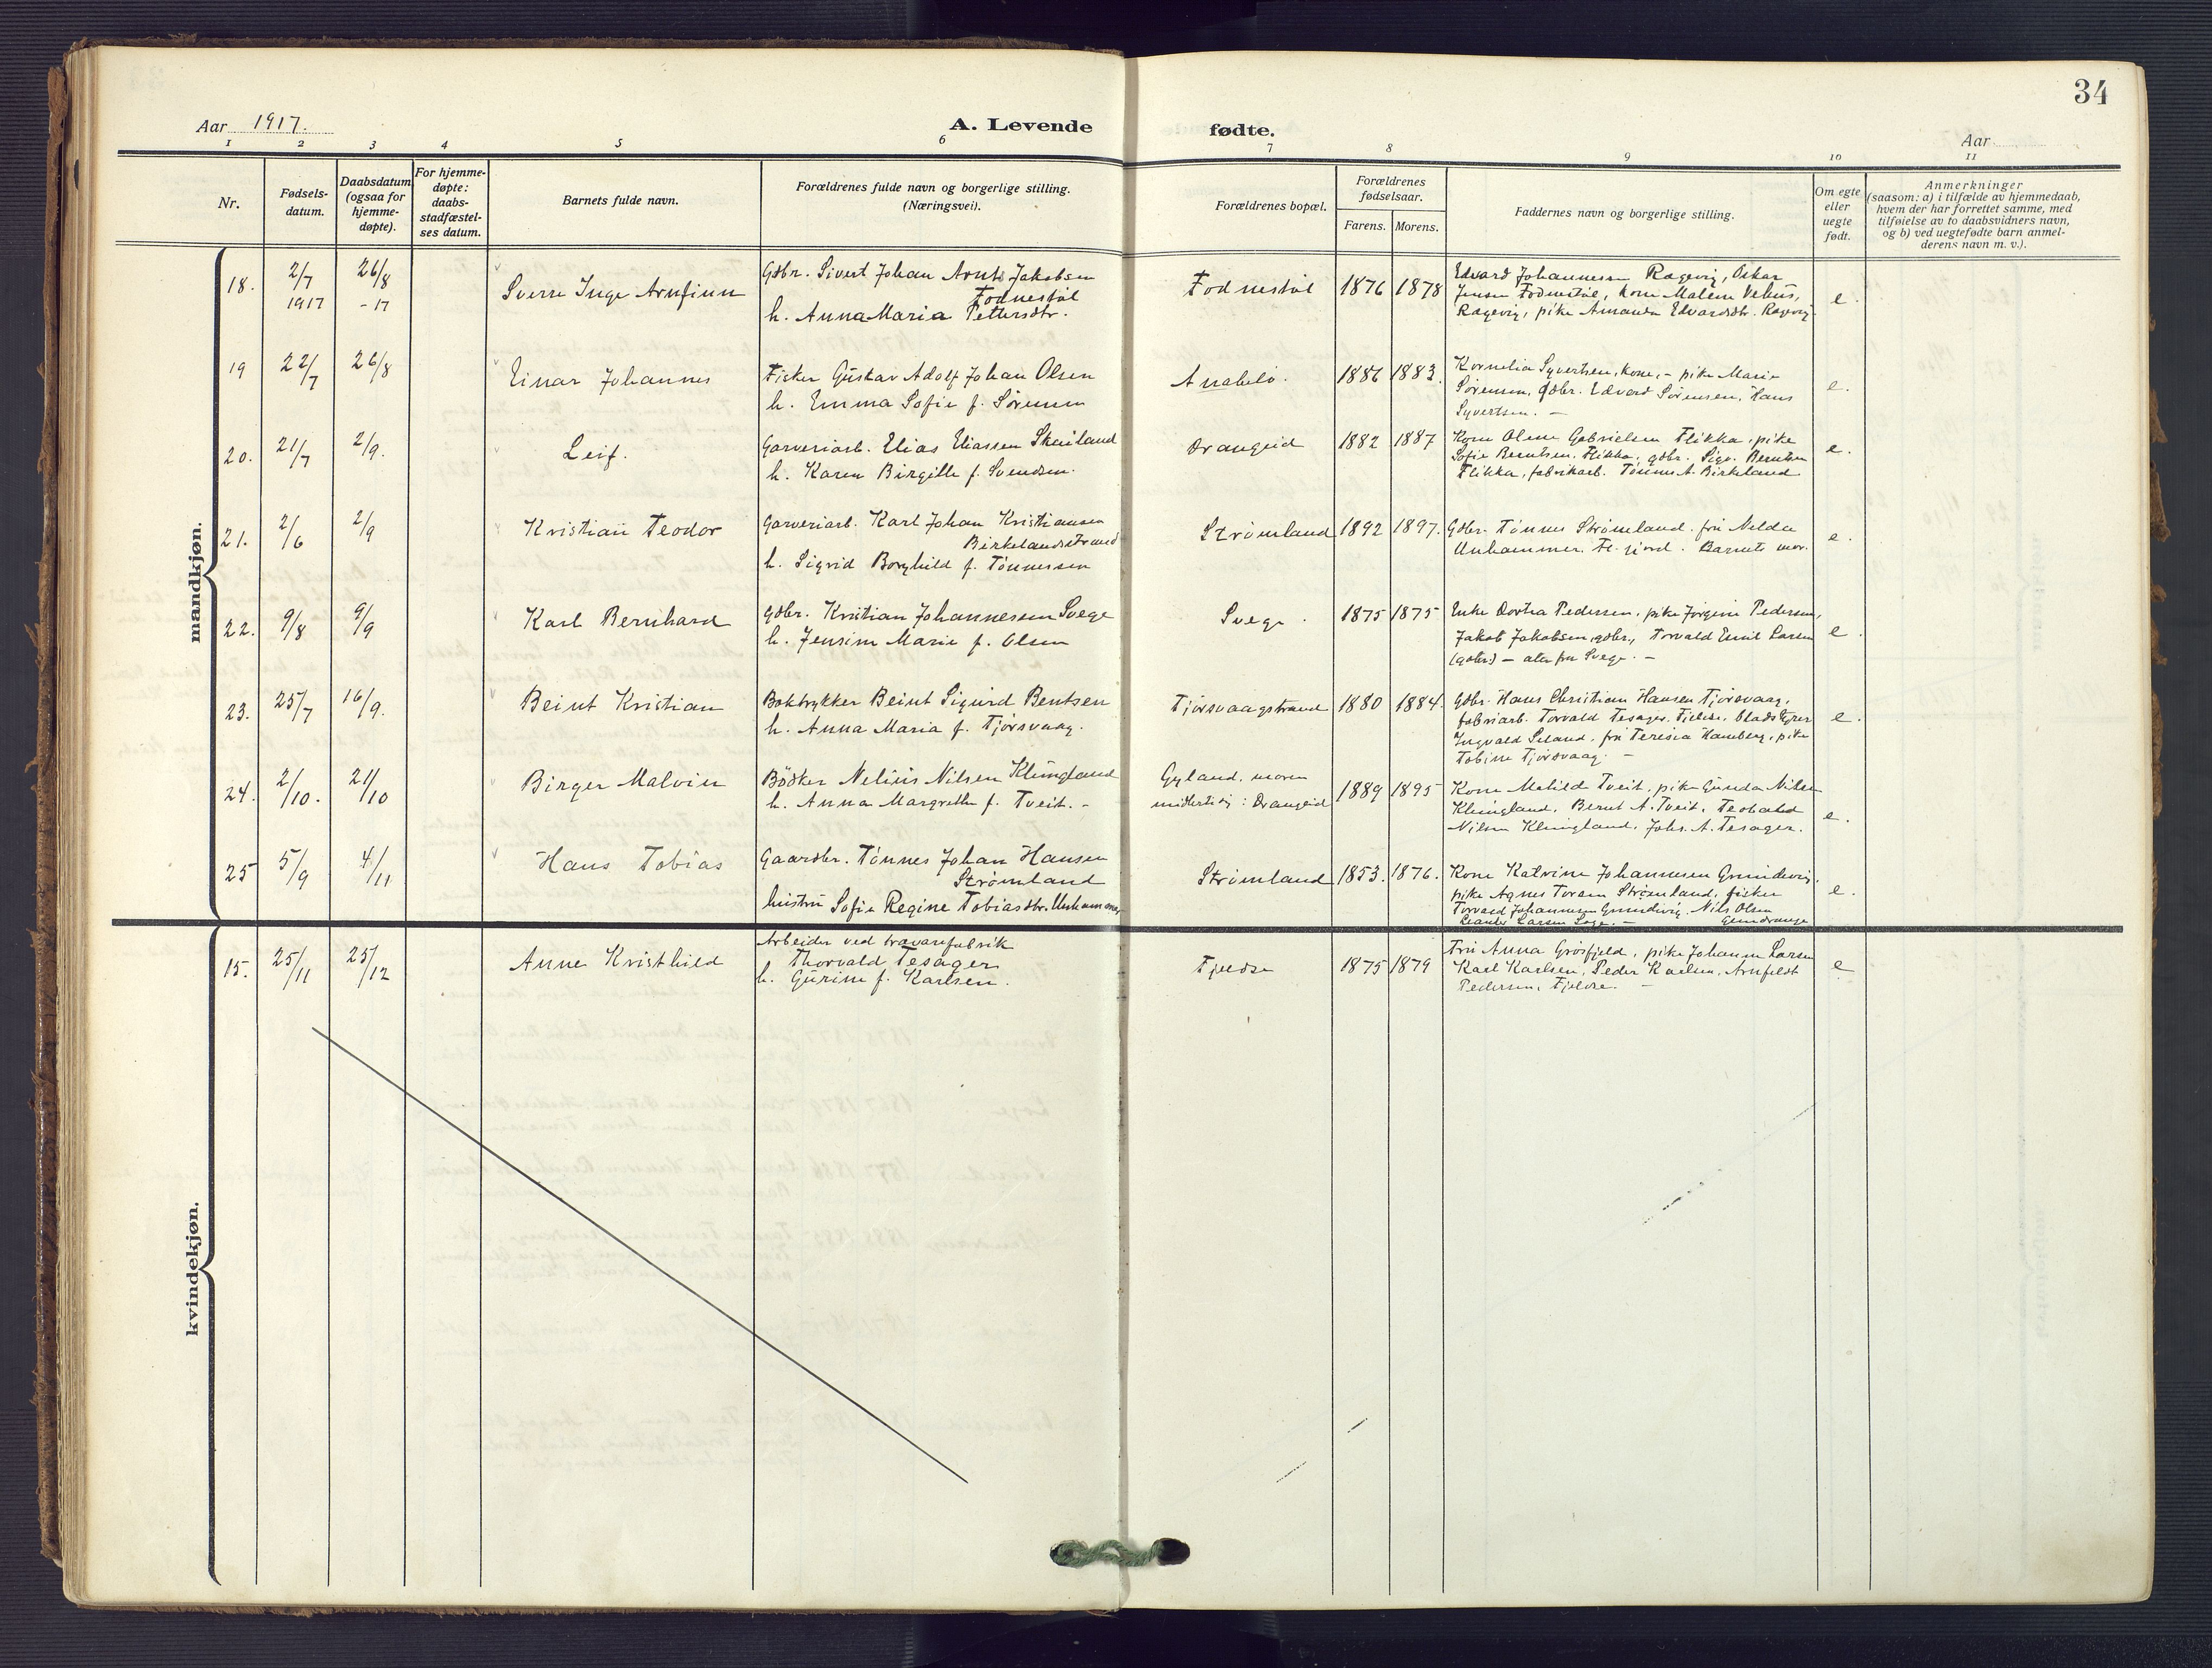 34
Aar 1917.
A. Levende fødte.
Aar
1 2 3 4 5 6 7 8 9 10 11
Nr.
Fødsels-
datum.
Daabsdatum
(ogsaa for
hjemme-
døpte).
For hjemme-
døpte:
daabs-
stadfæstel-
ses datum.
Barnets fulde navn.
Forældrenes fulde navn og borgerlige stilling.
(Næringsvei).
Forældrenes bopæl.
Forældrenes
fødselsaar.
Farens. Morens.
Faddernes navn og borgerlige stilling.
Om egte
eller
uegte
født.
Anmerkninger
(saasom: a) i tilfælde av hjemmedaab,
hvem der har forrettet samme, med
tilføielse av to daabsvidners navn,
og b) ved uegtefødte barn anmel-
derens navn m. v.).
mandkjøn.
18.
2/7
1917
26/8
- 17
Sverre Inge Arnfinn
Gdbr. Sivert Johan Arnts Jakobsen
Fodnestøl
h. Anna Maria Pettersdtr.
Fodnestøl
1876 1878
Edvard Johannessen Rægevig, Oskar
Jensen Fodnestøl, kone Malene Vehus,
Rægevig, pike Amanda Edvardsdtr. Rægevig
e.
19
22/7
26/8
Einar Johannes
Fisker Gustav Adolf Johan Olsen
h. Emma Sofie f. Sørensen
Anabelø.
1886 1883.
Kornelia Syvertsen, kone, - pike Marie
Sørensen, gdbr. Edvard Sørensen, Hans
Syvertsen. -
e.
20.
21/7
2/9.
Leif.
Garveriarb. Elias Eliassen Skeiland
h. Karen Birgitte f. Svendsen.
Drangeid
1882 1887
Kone Oline Gabrielsen Flikka, pike
Sofie Berntsen, Flikka, gdbr. Sigv. Berntsen
Flikka, fabrikarb. Tønnes A. Birkeland
e.
21.
2/6
2/9
Kristian Teodor
Garveriarb. Karl Johan Kristiansen
Birkelandsstrand
h. Sigrid Borghild f. Tønnessen
Strømland
1892 1897.
Gdbr. Tønnes Strømland. fru Nelda
Unhammer. Fl. fjord. Barnets mor.
e.
22.
9/8
9/9
Karl Bernhard
Gdbr. Kristian Johannessen Svege
h. Jensine Marie f. Olsen
Svege.
1875 1875
Enke Dortea Pedersen, pike Jørgine Pedersen,
Jakob Jakobsen, gdbr., Torvald Emil Larsen
(gdbr) - alle fra Svege. -
e.
23.
25/7
16/9.
Beint Kristian
Boktrykker Beint Sigurd Bentsen
h. Anna Maria f. Tjørsvaag.
Tjørsvaagstrand
1880 1884.
Gdbr. Hans Christian Hansen Tjørsvaag,
fabriarb. Torvald Tesager. Fjeldse, bladstyrer
Ingvald Seland, fru Teresia Hamberg, pike
Tobine Tjørsvaag. -
e.
24.
2/10.
21/10
Birger Malvin
Bödker Nelius Nilsen Klungland
h. Anna Margrethe f. Tveit. -
Gyland, moren
midlertidig: Drangeid
1889 1895
Kone Matilde Tveit, pike Gunda Nilsen
Klungland, Bernt A. Tveit, Teobald
Nilsen Klungland, Johs. A. Tesager.
e.
25
5/9
4/11
Hans Tobias
Gaardbr. Tønnes Johan Hansen
Strømland
hustru Sofie Regine Tobiasdtr. Unhammer
Strømland
1853. 1876.
Kone Katrine Johannesen Grundevig.
pike Agnes Torem Strømland, fisker
Torvald Johannesen Grundevig. Nils Olsen
Leander Larsen Loge. - Gjemdrange
e.
kvindekjøn.
15.
25/11
25/12
Anne Kristhild
Arbeider ved trævarefabrik
Thorvald Tesager
h. Gurine f. Karlsen.
Fjeldse
1875 1879
Fru Anna Grøsfjeld, pike Johanne Larsen
Karl Karlsen, Peder Karlsen, Arnfeldt
Pedersen, Fjeldse. -
e